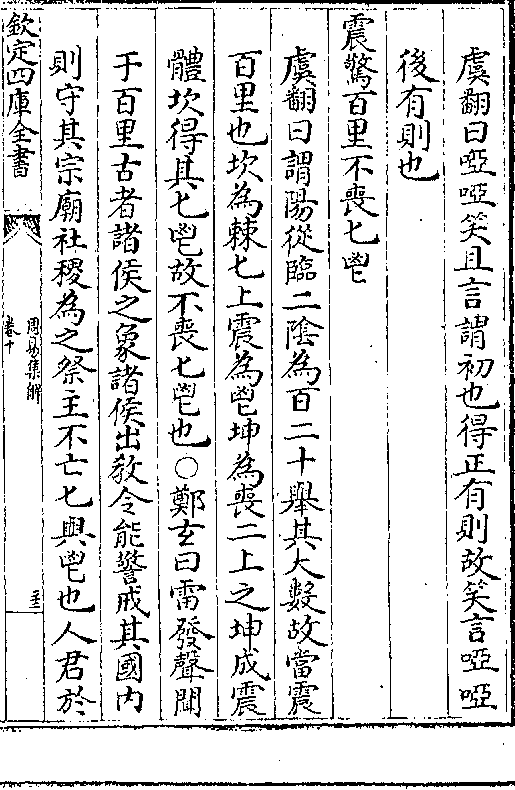 虞翻曰啞啞笑且言謂初也得正有則故笑言啞啞
後有則也
震驚百里不喪匕鬯
虞翻曰謂陽從臨二陰為百二十舉其大數故當震
百里也坎為棘匕上震為鬯坤為喪二上之坤成震
體坎得其匕鬯故不喪匕鬯也○鄭玄曰雷發聲聞
于百里古者諸侯之象諸侯出教令能警戒其國內
則守其宗廟社稷為之祭主不亡匕與鬯也人君於
欽定四庫全書
周易集解
卷十